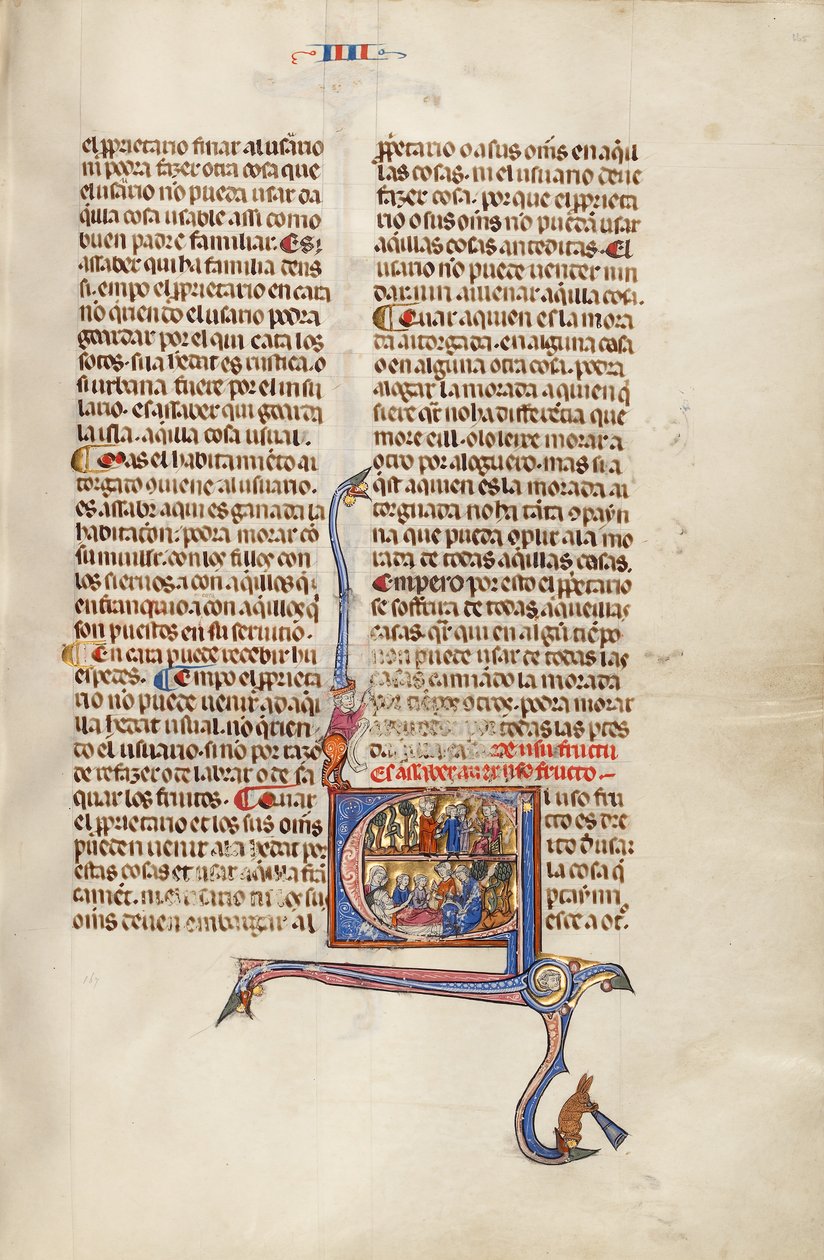 IIII
165
el ꝓprietario finar al usãrio
ni podra fazer otra cosa que
el usãrio nõ pueda usar da
q̃lla cosa usable assi como
buen padre familiar. Es;
assaber qui ha familia dens
si. empo el ꝓprietario en cara
nõ q̃riendo el usario podra
goardar por el qui cata los
sotos. si la hedat es rustica. o
si urbana fuere por el insu
lario. es assaber qui goarda
la isla. aq̃lla cosa usual.
Mas el habitamiẽto at
torgado ꝯuiene al usuario.
es assabr aqui es ganada la
habitaçõn. podra morar cõ
su muller. con los fillos con
los sieruos. a con aq̃llos q̃
en franquio. a con aq̃llos q̃
son puestos en su seruitio.
En cara puede recebir hu
espedes. Empo el ꝓprieta
rio nõ puede uenir ad aq̃
lla hedat usual. nõ q̃rien
do el usuario. si nõ por razõ
de refazer o de labrar o de sa
quar los fruitos. Quar
el ꝓprietario et los sus om̃s
pueden uenir a la hedat por
estas cosas et usar aq̃lla frã
camẽt. ni el usario ni los su
om̃s deuen embargar al
ꝓprietario o a sus om̃s en aq̃l
las cosas. ni el usuario deue
fazer cosa. por que el ꝓprieta
rio o sus om̃s nõ puedã usar
aq̃llas cosas anteditas. El
usario nõ puede uender nin
dar. nin aiuenar aq̃lla cosa.
Quar aquien es la mora
da atorgada. en alguna casa
o en alguna otra cosa. podra
alogar la morada a quien q̃
siere q̃r no ha differẽcia que
more eill. o lo lexe morar a
otro por aloguero. mas si a
q̃st aquien es la morada at
torguada no ha tãta ꝯpaỹn
na que pueda ꝯplir a la mo
rada de todas aq̃llas casas.
Empero por esto el ꝓprietario
se soffrira de todas aqueillas
casas. q̃r qui en algũ tiẽpo
non puede usar de todas las
casas camiãdo la morada
por tiẽpos otros. podra morar
por todas las ptes
da
De usu fructu
Es assaber
uso fructo.
l uso fru
cto es dre
ito d̃ usar
la cosa q̃
ptaỹni
esce a ot̃.
167